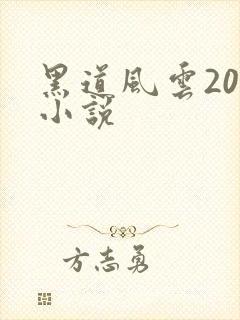 黑道风雲20
小說
方志勇